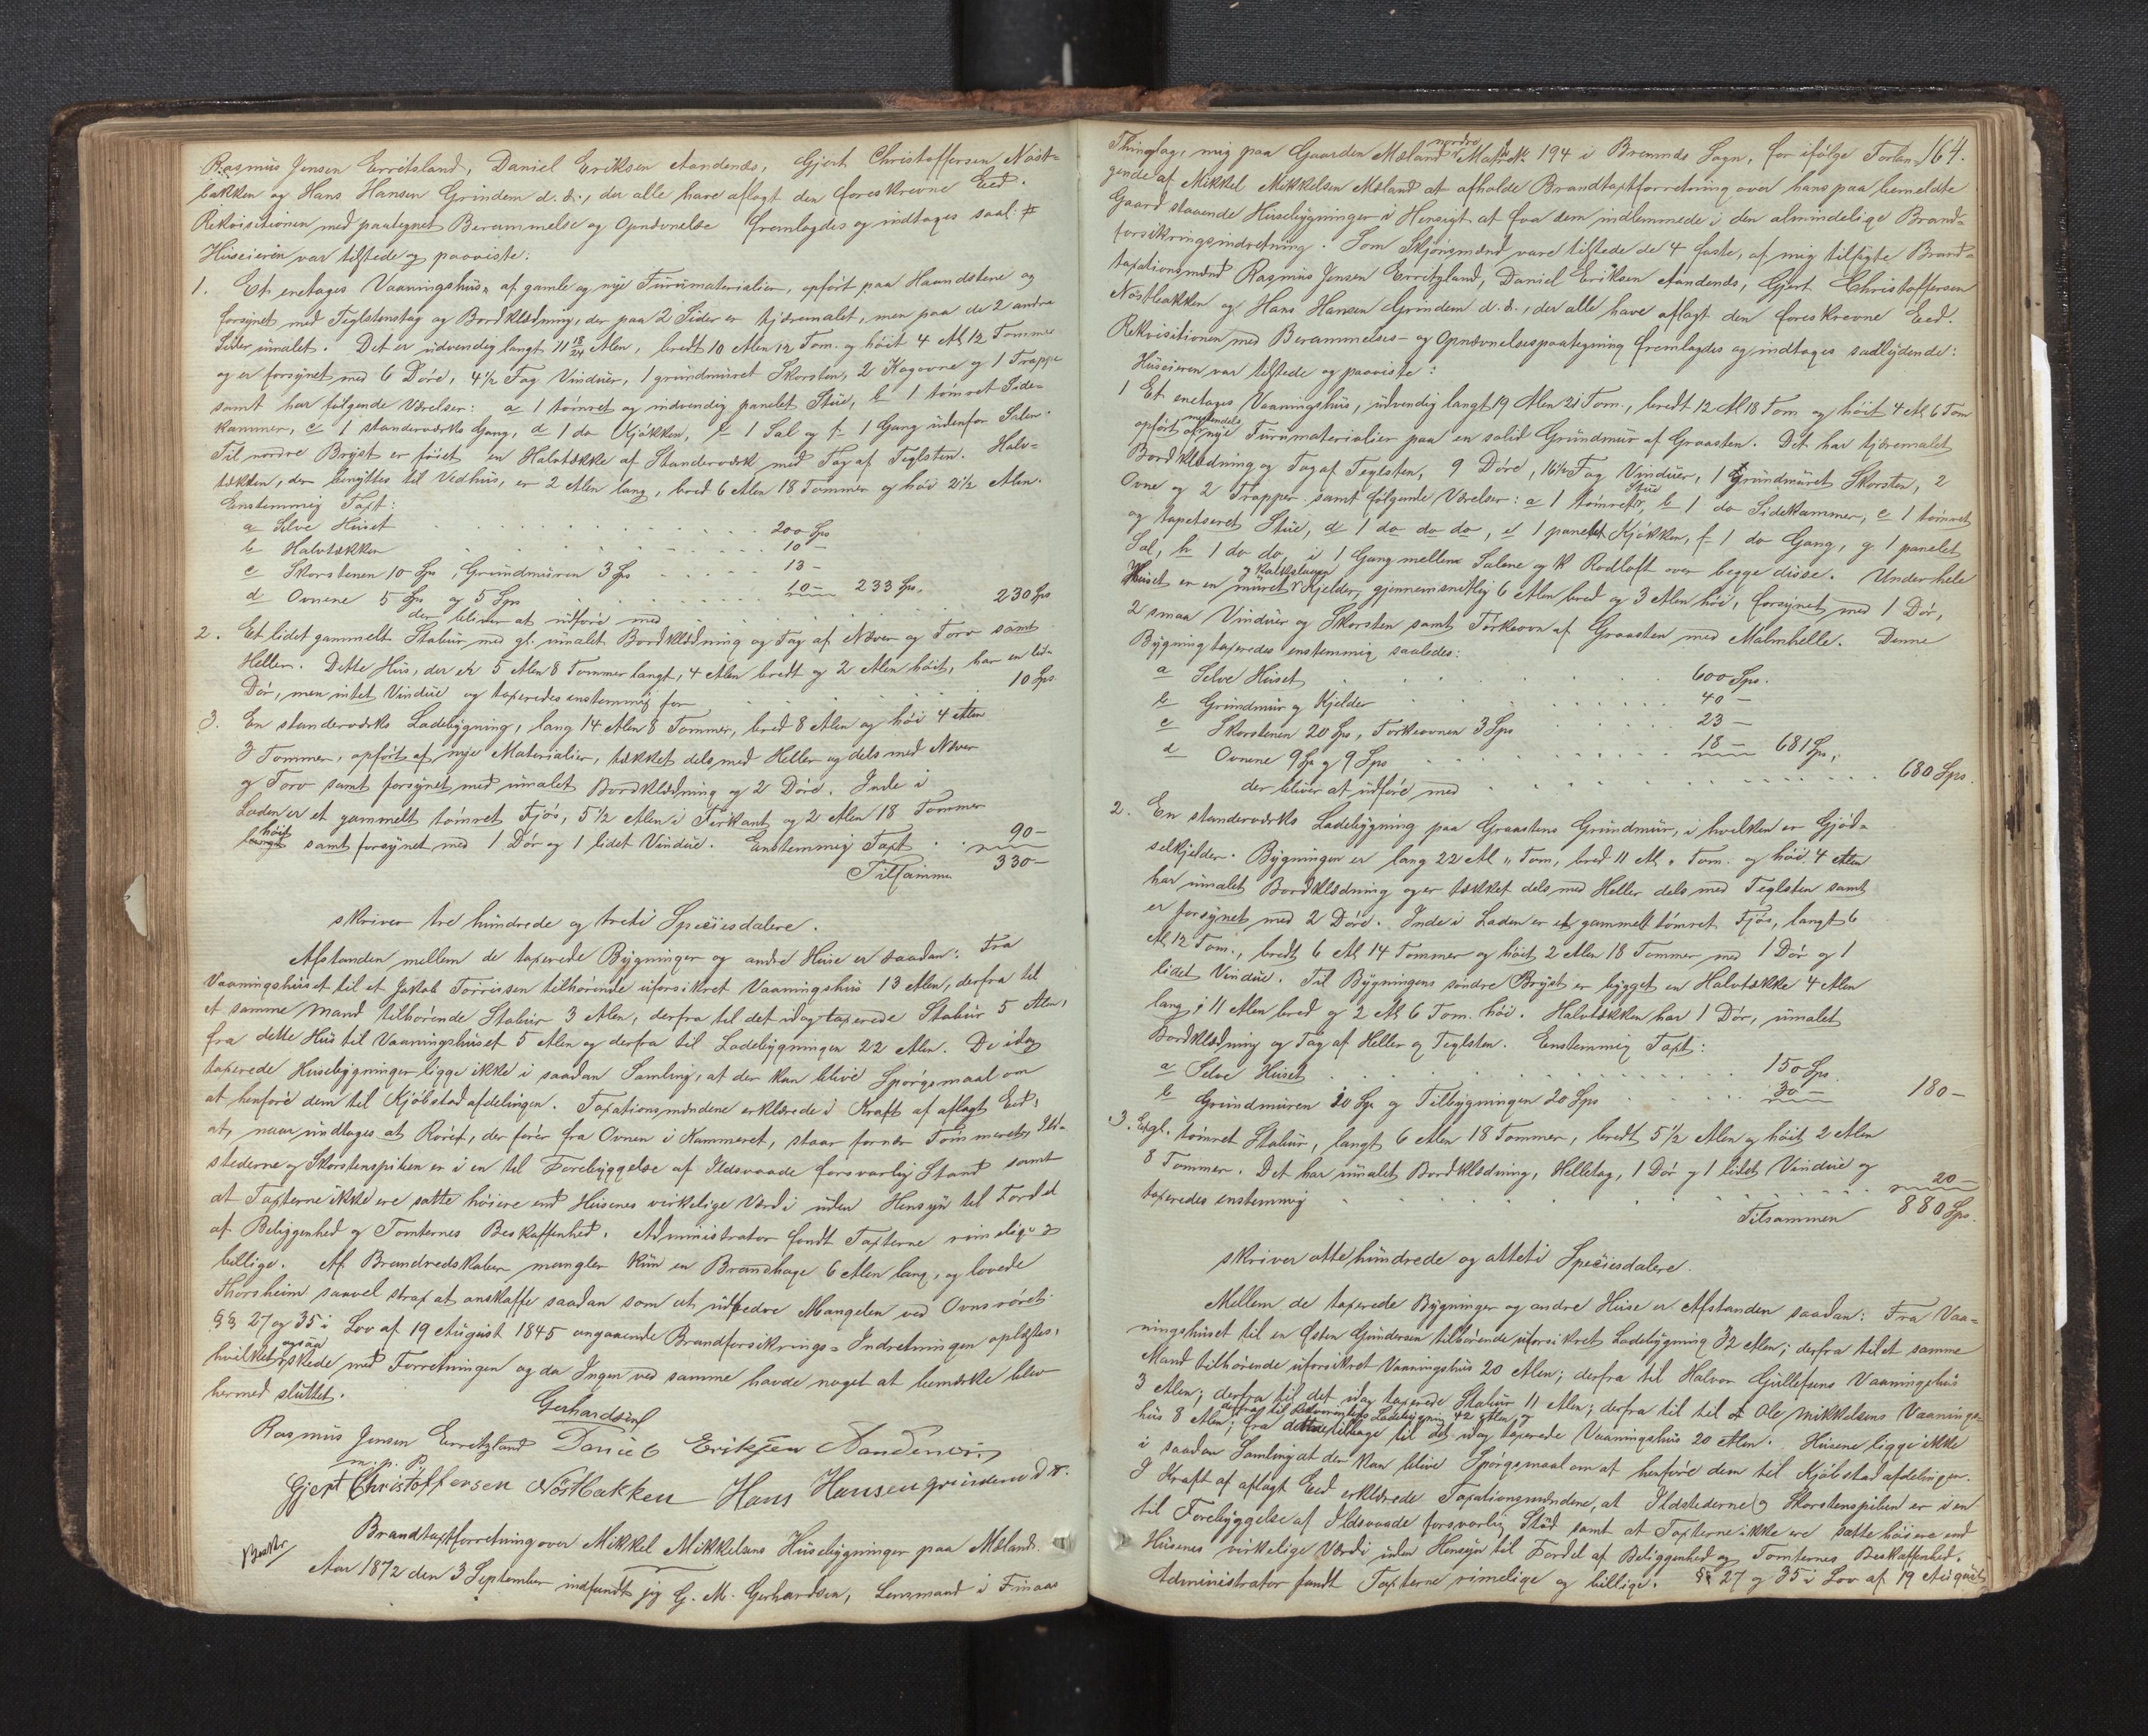 Rasmus Jensen Erritsland, Daniel Eriksen Aandenæs, Gjert Christoffersen Nøst-
bakken og Hans Hansen Grindem d. æ., der alle have aflagt den foreskrevne Eed.
Rekvisitionen med paategnet Berammelse og Opnævnelse fremlagdes og indtages saal: #
Huseieren var tilstede og paaviste:
1. Et enetages Vaaningshus, af gamle og nye Furumaterialier, opført paa Haandstene og
forsynet med Teglstenstag og Bordklædning, der paa 2 Sider er tjæremalet, men paa de 2 andre
Sider umalet. Det er udvendig langt 11 18/24 Alen, bredt 10 Alen 12 Tom. og høit 4 Al 12 Tommer
og er forsynet med 6 Døre, 4 1/2 Fag Vinduer, 1 grundmuret Skorsten, 2 Kagovne og 1 Trappe
samt har følgende Værelser: a 1 tømret og indvendig panelet Stue, b 1 tømret Side-
kammer, c 1 standerværks Gang, d 1 do Kjøkken, e 1 Sal og f 1 Gang udenfor Salen.
Til nordre Bryst er føiet en Halvtække af Standerværk med Tag af Teglsten. Halv-
tækken, der benyttes til Vedhus, er 2 Alen lang, bred 6 Alen 18 Tommer og høi 2 1/2 Alen.
Enstemmig Taxt:
a Selve Huset 200 Sps
b Halvtækken 10 —
c Skorstenen 10 Sps, Grundmuren 3 Sps 13 —
d Ovnene 5 Sps og 5 Sps 10 — 233 Sps,
der bliver at udføre med 230 Sps
2. Et lidet gammelt Stabur med gl. umalet Bordklædning og Tag af Næver og Torv samt
Heller. Dette Hus, der er 5 Alen 8 Tommer langt, 4 Alen bredt og 2 Alen høit, har en liden
Dør, men intet Vindue og taxeredes enstemmig for 10 Sps
3. En standerværks Ladebygning, lang 14 Alen 8 Tommer, bred 8 Alen og høi 4 Alen
3 Tommer, opført af nye Materialier, tækket dels med Heller og dels med Næver
og Torv samt forsynet med umalet Bordklædning og 2 Døre. Inde i
Laden er et gammelt tømret Fjøs, 5 1/2 Alen i Firkant og 2 Alen 18 Tommer
høit samt forsynet med 1 Dør og 1 lidet Vindue. Enstemmig Taxt 90 —
Tilsammen 330 —
skriver tre hundrede og treti Speciesdalere.
Afstanden mellem de taxerede Bygninger og andre Huse er saadan: Fra
Vaaningshuset til et Jakob Torrissen tilhørende uforsikret Vaaningshus 13 Alen, derfra til
et samme Mand tilhørende Stabur 3 Alen, derfra til det idag taxerede Stabur 5 Alen,
fra dette Hus til Vaaningshuset 5 Alen og derfra til Ladebygningen 22 Alen. De idag
taxerede Husebygninger ligge ikke i saadan Samling, at der kan blive Spørgsmaal om
at henføre dem til Kjøbstadafdelingen. Taxationsmændene erklærede i Kraft af aflagt Eed,
at, naar undtages at Røret, der fører fra Ovnen i Kammeret, staar for nær Tømmeret, Ild-
stederne og Skorstenspiben er i en til Forebyggelse af Ildsvaade forsvarlig Stand samt
at Taxterne ikke ere satte høiere end Husenes virkelige Værdi uden Hensyn til Fordel
af Beliggenhed og Tomternes Beskaffenhed. Administrator fandt Taxterne rimelige og
billige. Af Brandredskaber mangler kun en Brandhage 6 Alen lang, og lovede
Thorsheim saavel strax at anskaffe saadan som at udbedre Mangelen ved Ovnsrøret.
§§ 27 og 35 i Lov af 19 August 1845 angaaende Brandforsikrings-Indretningen oplæstes,
hvilket ogsaa skede med Forretningen og da Ingen ved samme havde noget at bemærke blev
hermed sluttet.
Gerhardsen
Rasmus Jensen Erritzland Daniel Eriksen Aandenæs
m. p. P.
Gjert Christoffersen Nøstbakken Hans Hansen Grindem d. æ.
Brandtaxtforretning over Mikkel Mikkelsens Husebygninger paa Mæland.
Aar 1872 den 3 September indfandt jeg G. M. Gerhardsen, Lensmand i Finaas
164.
Thinglag, mig paa Gaarden Mæland nordre Matr. № 194 i Bremnæs Sogn, for ifølge Forlan-
gende af Mikkel Mikkelsen Mæland at afholde Brandtaxtforretning over hans paa bemeldte
Gaard staaende Husebygninger i Hensigt at faa dem indlemmede i den almindelige Brand-
forsikringsindretning. Som Skjønsmænd vare tilstede de 4 faste, af mig tilsagte Brand-
taxationsmænd Rasmus Jensen Erritzland, Daniel Eriksen Aandenæs, Gjert Christoffersen
Nøstbakken og Hans Hansen Grindem d. æ., der alle have aflagt den foreskrevne Eed.
Rekvisitionen med Berammelses- og Opnævnelsespaategning fremlagdes og indtages saalydende:
Huseieren var tilstede og paaviste:
1 Et enetages Vaaningshus, udvendig langt 19 Alen 21 Tom., bredt 12 Al 18 Tom og høit 4 Al 6 Tom
opført af mestendels nye Furumaterialier paa en solid Grundmur af Graasten. Det har tjæremalet
Bordklædning og Tag af Teglsten, 9 Døre, 16 1/2 Fag Vinduer, 1 Grundmuret Skorsten, 2
Ovne og 2 Trapper samt følgende Værelser: a 1 tømret Stue, b 1 do Sidekammer, c 1 tømret
og tapetseret Stue, d 1 do do do, e 1 panelet Kjøkken, f 1 do Gang, g. 1 panelet
Sal, h 1 do do, i 1 Gang mellem Salene og k Rodloft over begge disse. Under hele
Huset er en muret og kalkslagen Kjelder, gjennemsnitlig 6 Alen bred og 3 Alen høi, forsynet med 1 Dør,
2 smaa Vinduer og Skorsten samt Tørkeovn af Graasten med Malmhelle. Denne
Bygning taxeredes enstemmig saaledes:
a Selve Huset 600 Sps.
b Grundmur og Kjelder 40 —
c Skorstenen 20 Sps, Torkeovnen 3 Sps 23 —
d Ovnene 9 Sps og 9 Sps 18 — 681 Sps,
der bliver at udføre med 680 Sps.
2. En standerværks Ladebygning paa Graastens Grundmur, i hvilken er Gjød-
selkjelder. Bygningen er lang 22 Al „ Tom, bred 11 Al „ Tom. og høi 4 Alen
har umalet Bordklædning og er tækket dels med Heller dels med Teglsten samt
er forsynet med 2 Døre. Inde i Laden er et gammelt tømret Fjøs, langt 6
Al 12 Tom., bredt 6 Al 14 Tommer og høit 2 Alen 18 Tommer med 1 Dør og 1
lidet Vindue. Til Bygningens søndre Bryst er bygget en Halvtække 4 Alen
lang, 11 Alen bred og 2 Al 6 Tom. høi. Halvtækken har 1 Dør, umalet
Bordklædning og Tag af Heller og Teglsten. Enstemmig Taxt:
a Selve Huset 150 Sps.
b Grundmuren 10 Sps og Tilbygningen 20 Sps 30 — 180 —
3. Et gl. tømret Stabur, langt 6 Alen 18 Tommer, bredt 5 1/2 Alen og høit 2 Alen
8 Tommer. Det har umalet Bordklædning, Helletag, 1 Dør og 1 lidet Vindue og
taxeredes enstemmig 20 —
Tilsammen 880 Sps.
skriver otte hundrede og otteti Speciesdalere.
Mellem de taxerede Bygninger og andre Huse er Afstanden saadan: Fra Vaa-
ningshuset til en Østen Gundersen tilhørende uforsikret Ladebygning 32 Alen; derfra til et samme
Mand tilhørende uforsikret Vaaningshus 20 Alen; derfra til Halvor Gullefsens Vaaningshus
3 Alen; derfra til det idag taxerede Stabur 11 Alen; derfra til til Ole Mikkelsens Vaanings-
derfra til Ladebygning 42 Alen,
hus 8 Alen; fra dette tilbage til det idag taxerede Vaaningshus 20 Alen. Husene ligge ikke
i saadan Samling at der kan blive Spørgsmaal om at henføre dem til Kjøbstadafdelingen.
I Kraft af aflagt Eed erklærede Taxationsmændene, at Ildstederne og Skorstenspiben er i en
til Forebyggelse af Ildsvaade forsvarlig Stad samt at Taxterne ikke ere satte høiere end
Husenes virkelige Værdi uden Hensyn til Fordel af Beliggenhed og Tomternes Beskaffenhed.
Administrator fandt Taxterne rimelige og billige. §§ 27 og 35 i Lov af 19 August